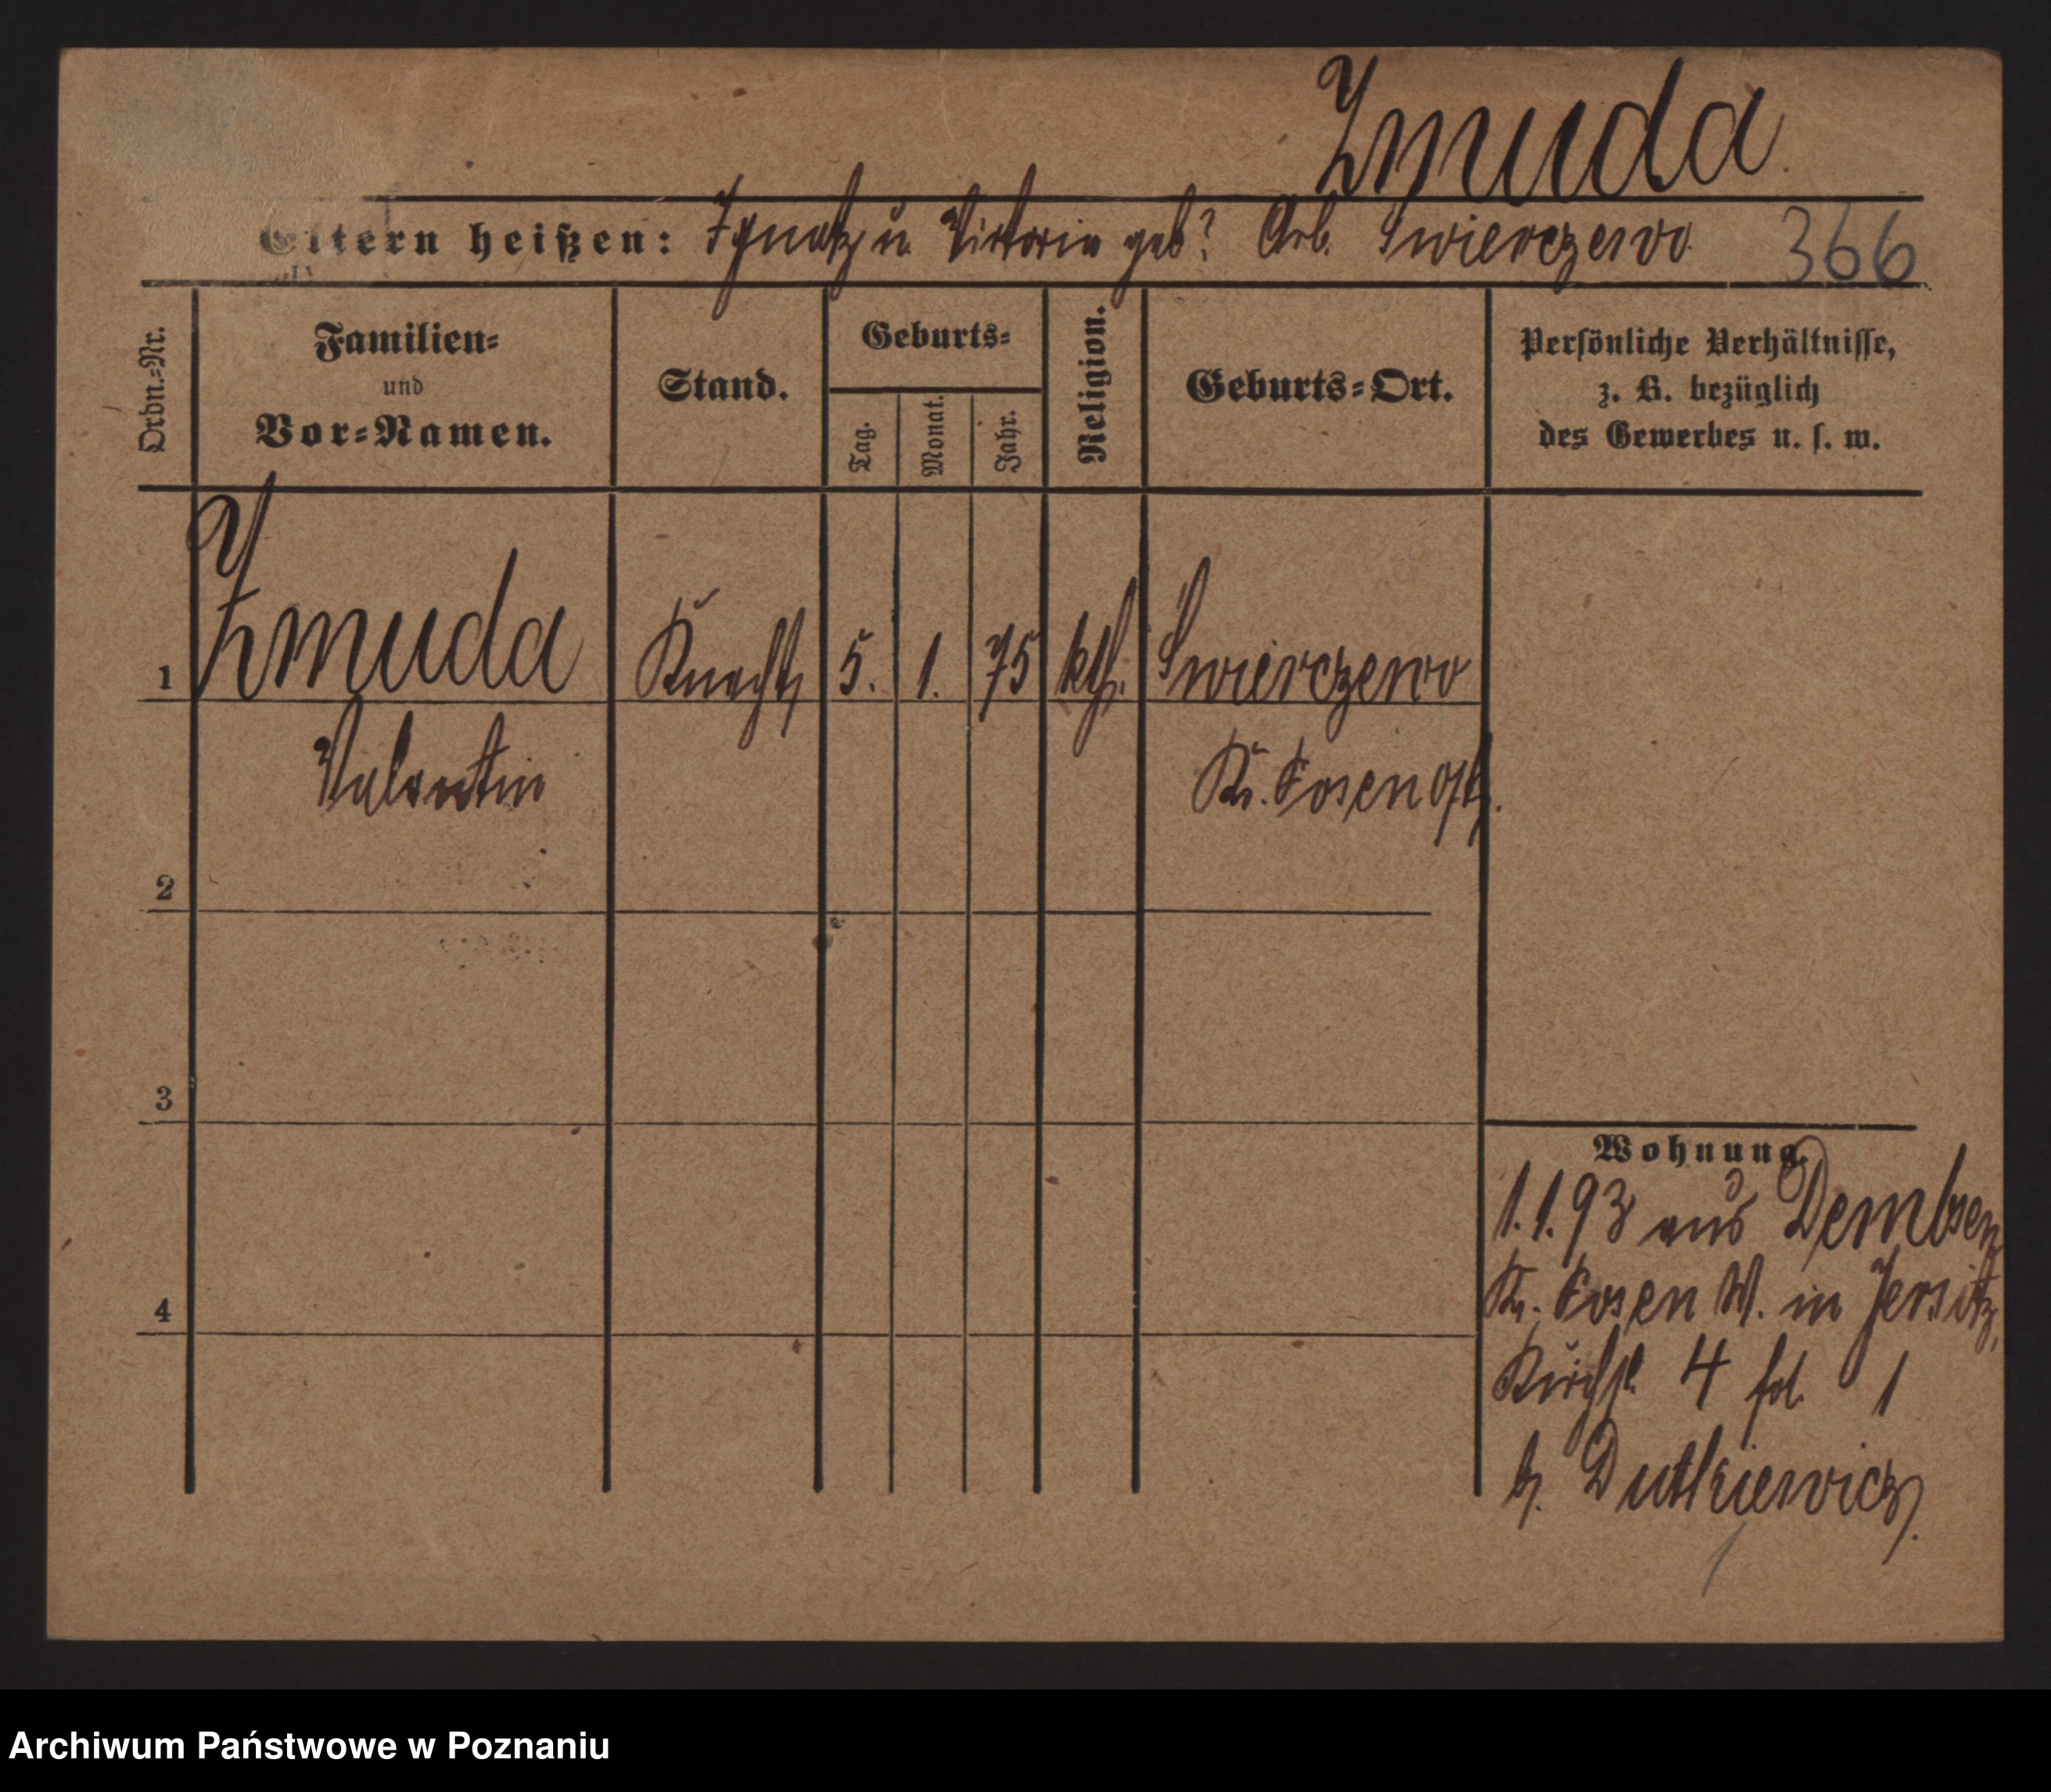 Zmuda
Eltern heißen: Ignatz u. Victoria geb? Arb. Swierczewo 366
Ordn.=Nr.
Familien=
und
Vor=Namen.
Stand.
Geburts=
Tag.
Monat.
Jahr.
Religion.
Geburts=Ort.
Persönliche Verhältnisse,
z. B. bezüglich
des Gewerbes u. s. w.
1 Zmuda Knecht 5. 1. 75 kth. Swierczewo
Valentin Kr. Posen
2
3
4
Wohnung.
1.1.93 aus Dembsen
Kr. Posen W. in Jersitz,
4 1
b. Dutkiewicz.
Archiwum Państwowe w Poznaniu